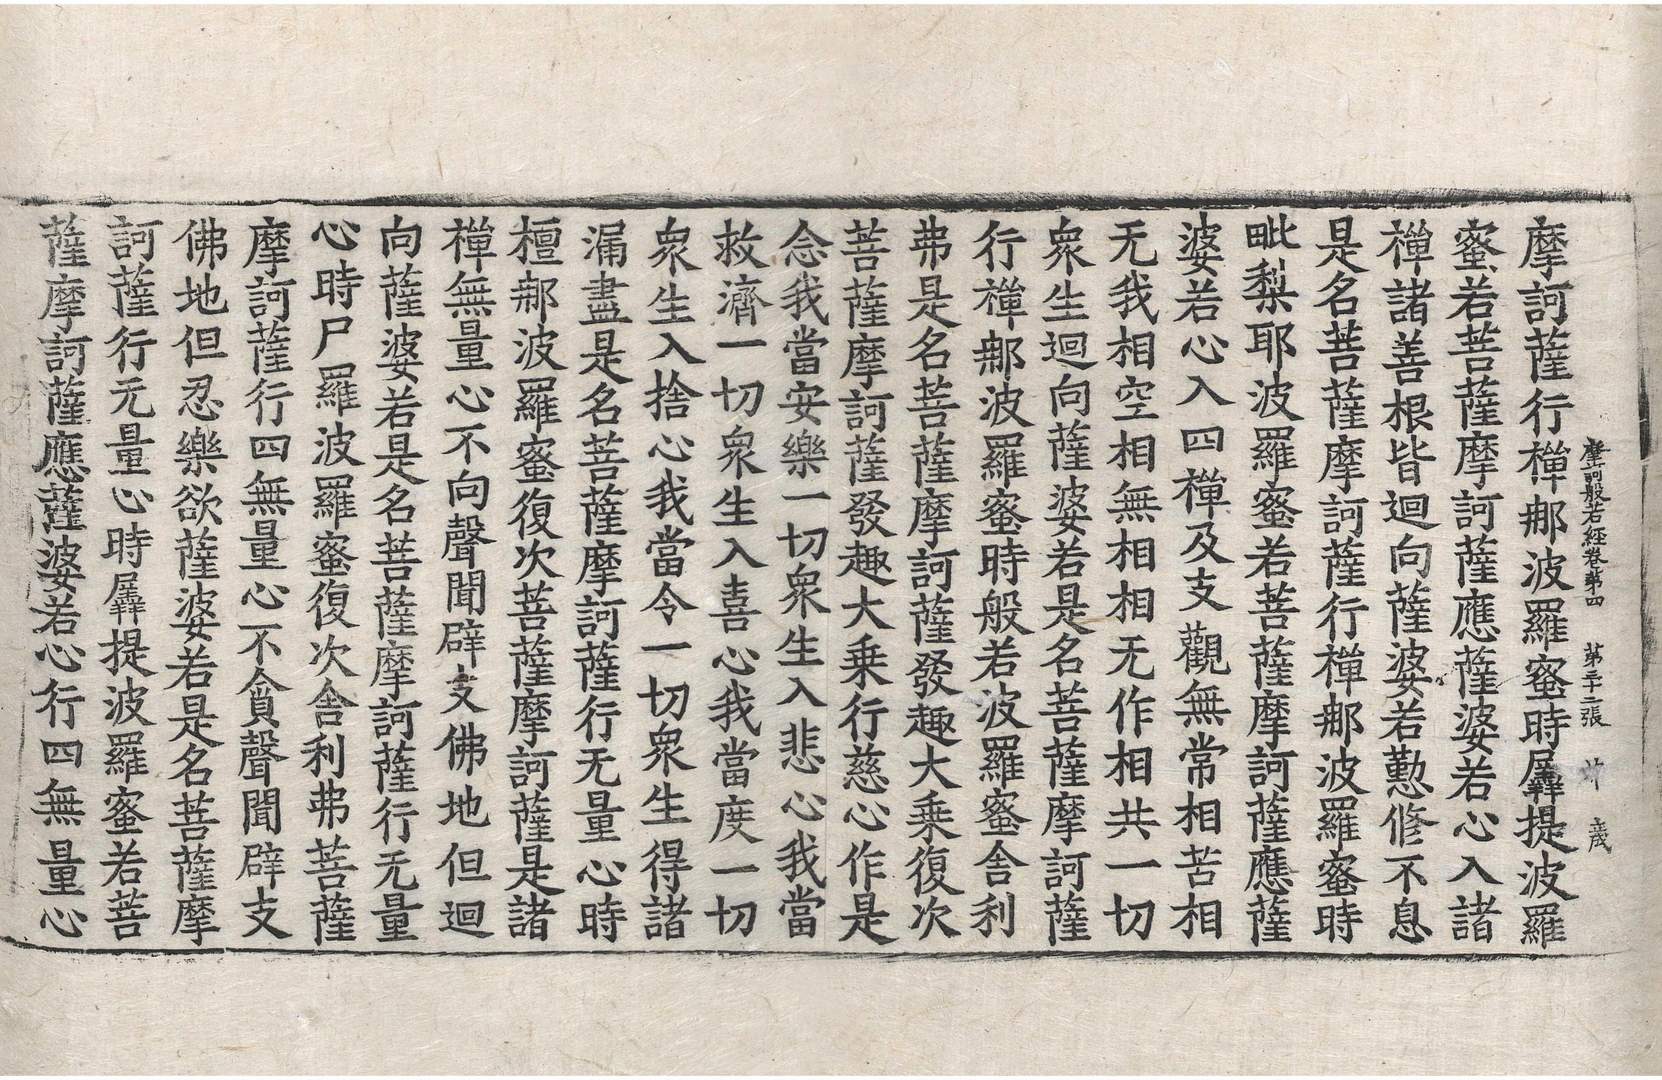 摩訶般若經卷第四 第三十二張 芥 歲
摩訶薩行禪那波羅蜜時羼提波羅
蜜若菩薩摩訶薩應薩婆若心入諸
禪諸善根皆迴向薩婆若懃修不息
是名菩薩摩訶薩行禪那波羅蜜時
毗梨耶波羅蜜若菩薩摩訶薩應薩
婆若心入四禪及支觀無常相苦相
无我相空相無相相无作相共一切
衆生迴向薩婆若是名菩薩摩訶薩
行禪那波羅蜜時般若波羅蜜舍利
弗是名菩薩摩訶薩發趣大乗復次
菩薩摩訶薩發趣大乗行慈心作是
念我當安樂一切衆生入悲心我當
救濟一切衆生入喜心我當度一切
衆生入捨心我當令一切衆生得諸
漏盡是名菩薩摩訶薩行无量心時
檀那波羅蜜復次菩薩摩訶薩是諸
禪無量心不向聲聞辟支佛地但迴
向薩婆若是名菩薩摩訶薩行无量
心時尸羅波羅蜜復次舍利弗菩薩
摩訶薩行四無量心不貪聲聞辟支
佛地但忍樂欲薩婆若是名菩薩摩
訶薩行无量心時羼提波羅蜜若菩
薩摩訶薩應薩婆若心行四無量心